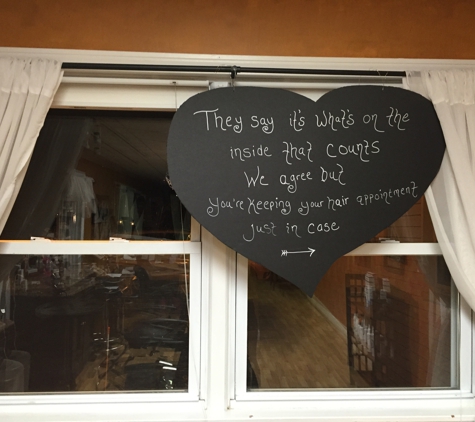 They say it's what's on the
inside that counts
We agree but
you're keeping your hair appointment
just in case